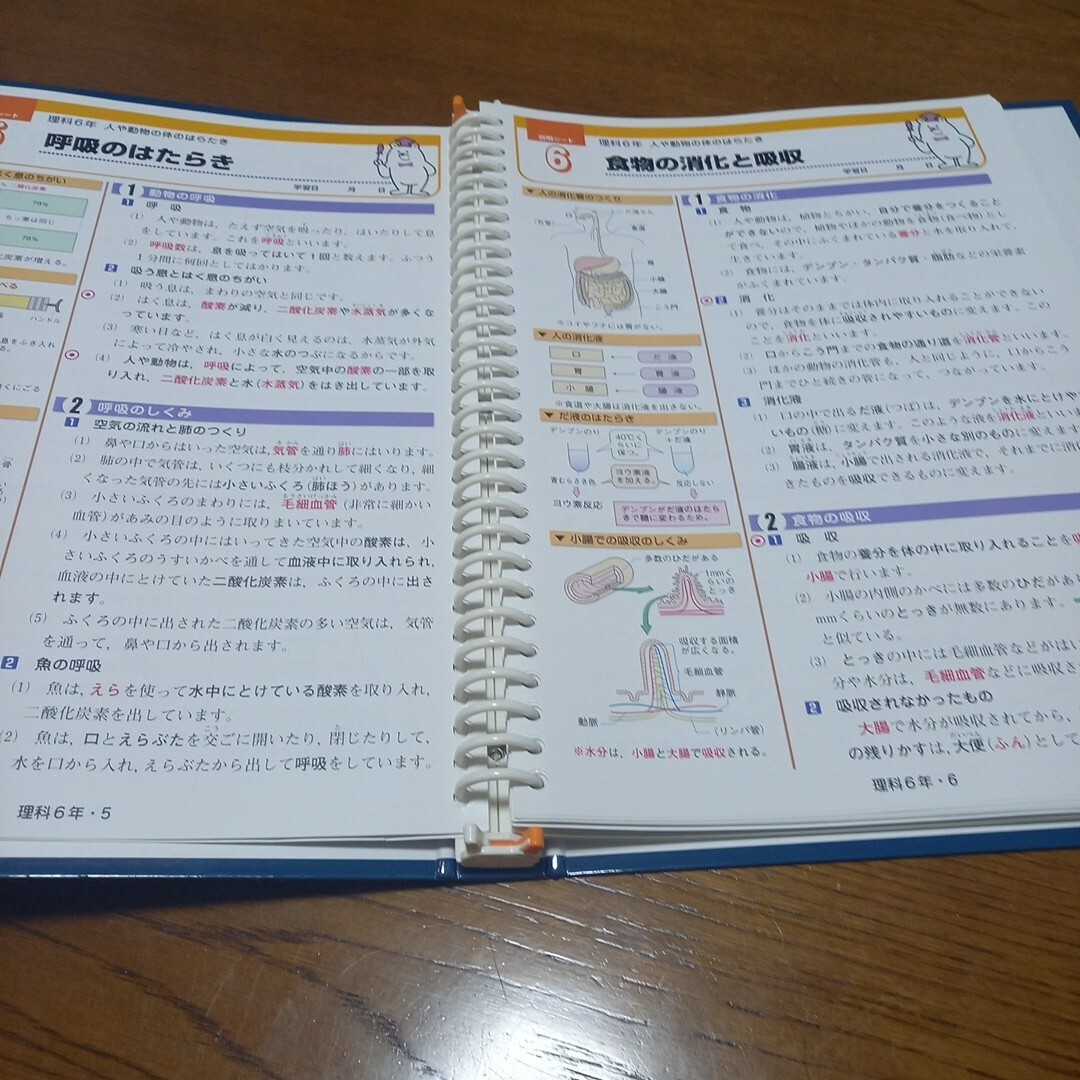 シート
理科6年 人や動物の体のはたらき
呼吸のはたらき
学習日 月 日
く息のちがい
二酸化炭素
78%
ちっ素は同じ
78%
化炭素が増える。
べる
ハンドル
息をふき入れ
る。
くにごる
1 動物の呼吸
1 呼 吸
(1) 人や動物は、たえず空気を吸ったり、はいたりして息
をしています。これを呼吸といいます。
(2) 呼吸数は、息を吸ってはいて1回と数えます。ふつう
1分間に何回としてはかります。
2 吸う息とはく息のちがい
(1) 吸う息は、まわりの空気と同じです。
(2) はく息は、酸素が減り、二酸化炭素や水蒸気が多くな
っています。
(3) 寒い日など、はく息が白く見えるのは、水蒸気が外気
によって冷やされ、小さな水のつぶになるからです。
(4) 人や動物は、呼吸によって、空気中の酸素の一部を取
り入れ、二酸化炭素と水(水蒸気)をはき出しています。
2 呼吸のしくみ
1 空気の流れと肺のつくり
(1) 鼻や口からはいった空気は、気管を通り肺にはいります。
(2) 肺の中で気管は、いくつにも枝分かれして細くなり、細
くなった気管の先には小さいふくろ(肺ほう)があります。
(3) 小さいふくろのまわりには、毛細血管(非常に細かい
血管)があみの目のように取りまいています。
(4) 小さいふくろの中にはいってきた空気中の酸素は、小
さいふくろのうすいかべを通して血液中に取り入れられ、
血液の中にとけていた二酸化炭素は、ふくろの中に出さ
れます。
(5) ふくろの中に出された二酸化炭素の多い空気は、気管
を通って、鼻や口から出されます。
2 魚の呼吸
(1) 魚は、えらを使って水中にとけている酸素を取り入れ、
二酸化炭素を出しています。
(2) 魚は、口とえらぶたを交ごに開いたり、閉じたりして、
水を口から入れ、えらぶたから出して呼吸をしています。
理科6年・5
説明シート
6
理科6年 人や動物の体のはたらき
食物の消化と吸収
学習日 月 日
▼人の消化管のつくり
口
だ液せん
食道
胃
小腸
大腸
こう門
※コイやフナには胃がない。
▼人の消化液
口 だ液
胃 胃液
小腸 腸液
※食道や大腸は消化液を出さない。
▼だ液のはたらき
デンプンのり
40℃く
らいに
保つ。
デンプンのり
+だ液
ヨウ素液
を加える。
青むらさき色
反応しない
ヨウ素反応
デンプンがだ液のはたら
きで糖に変わるため。
▼小腸での吸収のしくみ
多数のひだがある
1mmく
らいの
とっき
吸収する面積
が広くなる。
毛細血管
静脈
動脈
(リンパ管)
※水分は、小腸と大腸で吸収される。
1 食物の消化
1 食 物
(1) 人や動物は、植物とちがい、自分で養分をつくること
ができないので、植物やほかの動物を食物(食べ物)とし
て食べ、その中にふくまれている養分と水を取り入れて、
生きています。
(2) 食物には、デンプン・タンパク質・脂肪などの栄養素
がふくまれています。
2 消 化
(1) 養分はそのままでは体内に取り入れることができない
ので、食物を体に吸収されやすいものに変えます。この
ことを消化といいます。
(2) 口からこう門までの食物の通り道を消化管といいます。
(3) ほかの動物の消化管も、人と同じように、口からこう
門までひと続きの管になって、つながっています。
3 消化液
(1) 口の中で出るだ液(つば)は、デンプンを水にとけや
いもの(糖)に変えます。このような液を消化液といいま
(2) 胃液は、タンパク質を小さな別のものに変えます
(3) 腸液は、小腸で出される消化液で、それまでに消
きたものを吸収できるものに変えます。
2 食物の吸収
1 吸 収
(1) 食物の養分を体の中に取り入れることを
小腸で行います。
(2) 小腸の内側のかべには多数のひだがあ
mmくらいのとっきが無数にあります。
と似ている。
(3) とっきの中には毛細血管などがはい
分や水分は、毛細血管などに吸収さ
2 吸収されなかったもの
大腸で水分が吸収されてから、
の残りかすは、大便(ふん)として
理科6年・6